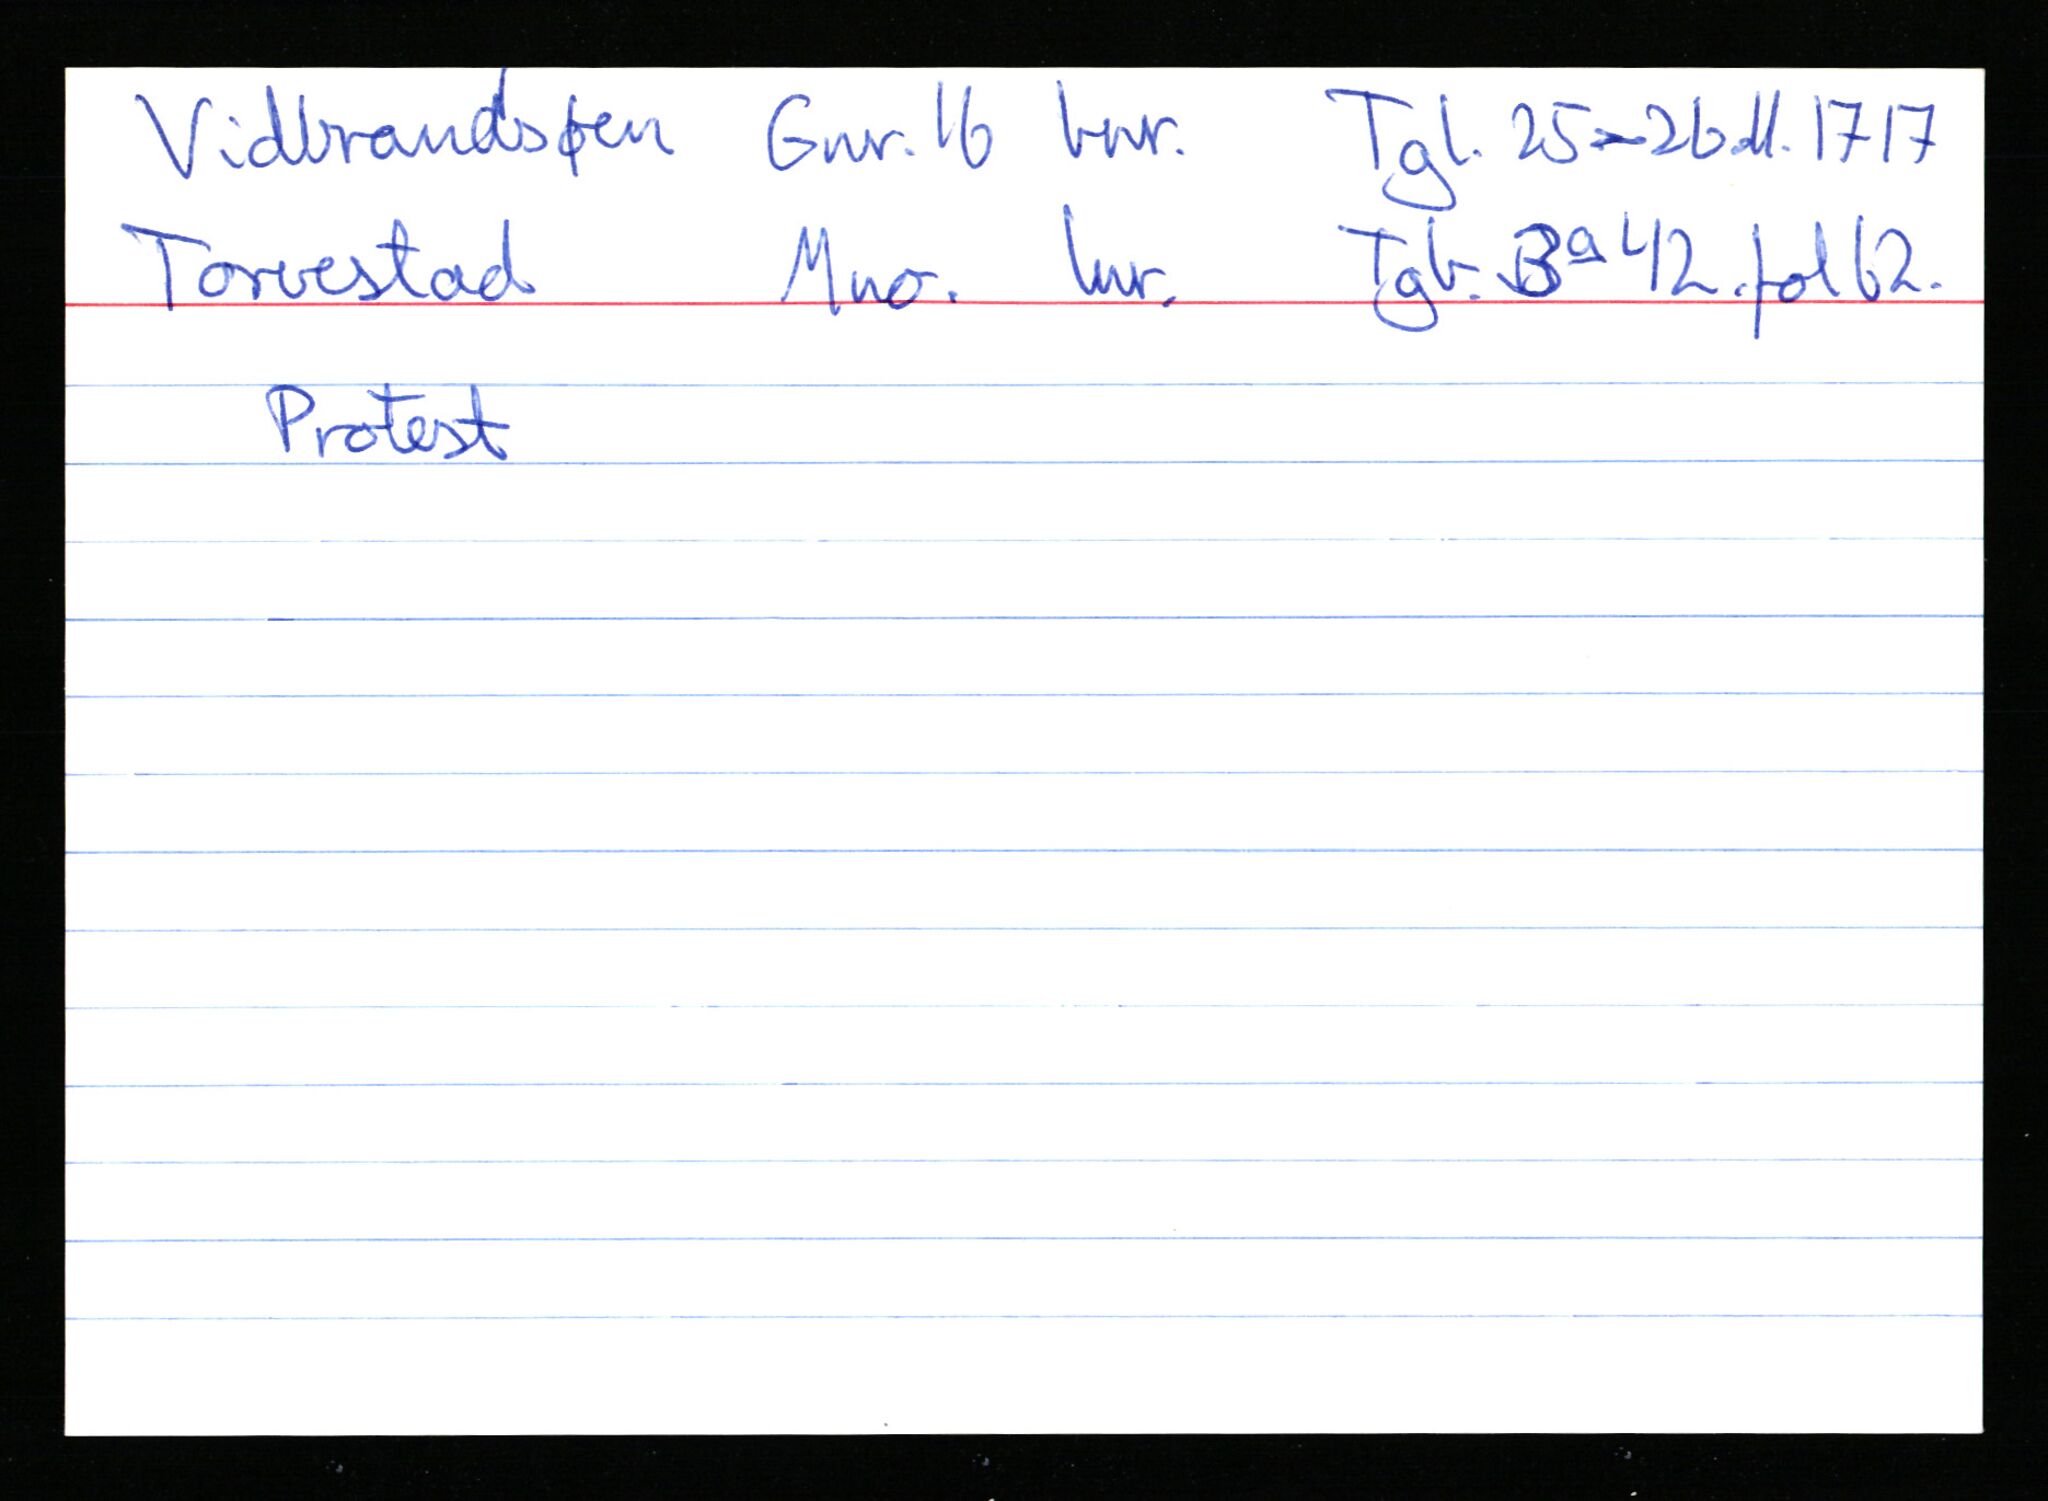 Vidbrandsøen Gnr. 16 bnr. Tgl. 25-26.11.1717
Torvestad Mno. lnr. Tgb. Bª 42. fol 62.
Protest